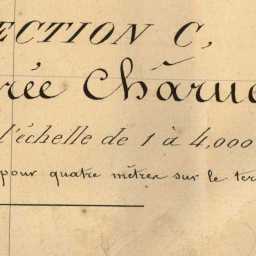 ECTION C,
rée Charu
l'échelle de 1 à 4,000
pour quatre mètres sur le ter